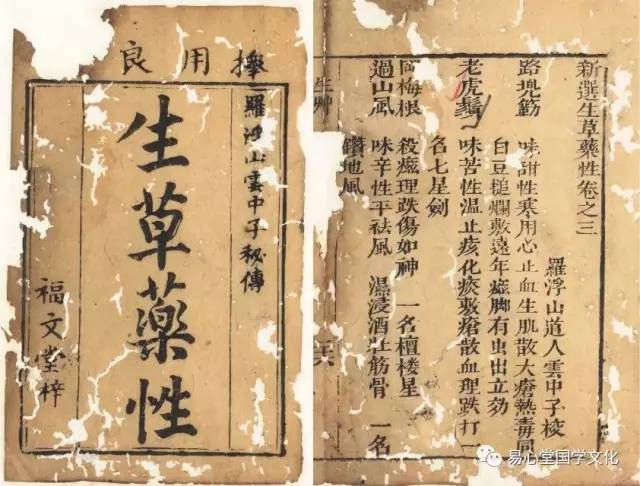 用良
羅浮山雲中子秘傳
生草藥性
福文堂梓
新選生草藥性卷之三
羅浮山道人雲中子
路兠筋 味甜性寒用心止血生肌散大瘡熱毒同
白豆槌爛敷遠年脚有虫出立効
老虎鬚 味苦性温止痎化痰敷瘡散血理跌打一
名七星劍
岡梅根 殺理跌傷如神 一名檀楼星
過山風 味辛性平祛風 濕浸酒壯筋骨 一名
鑽地風
生艸
易心堂国学文化